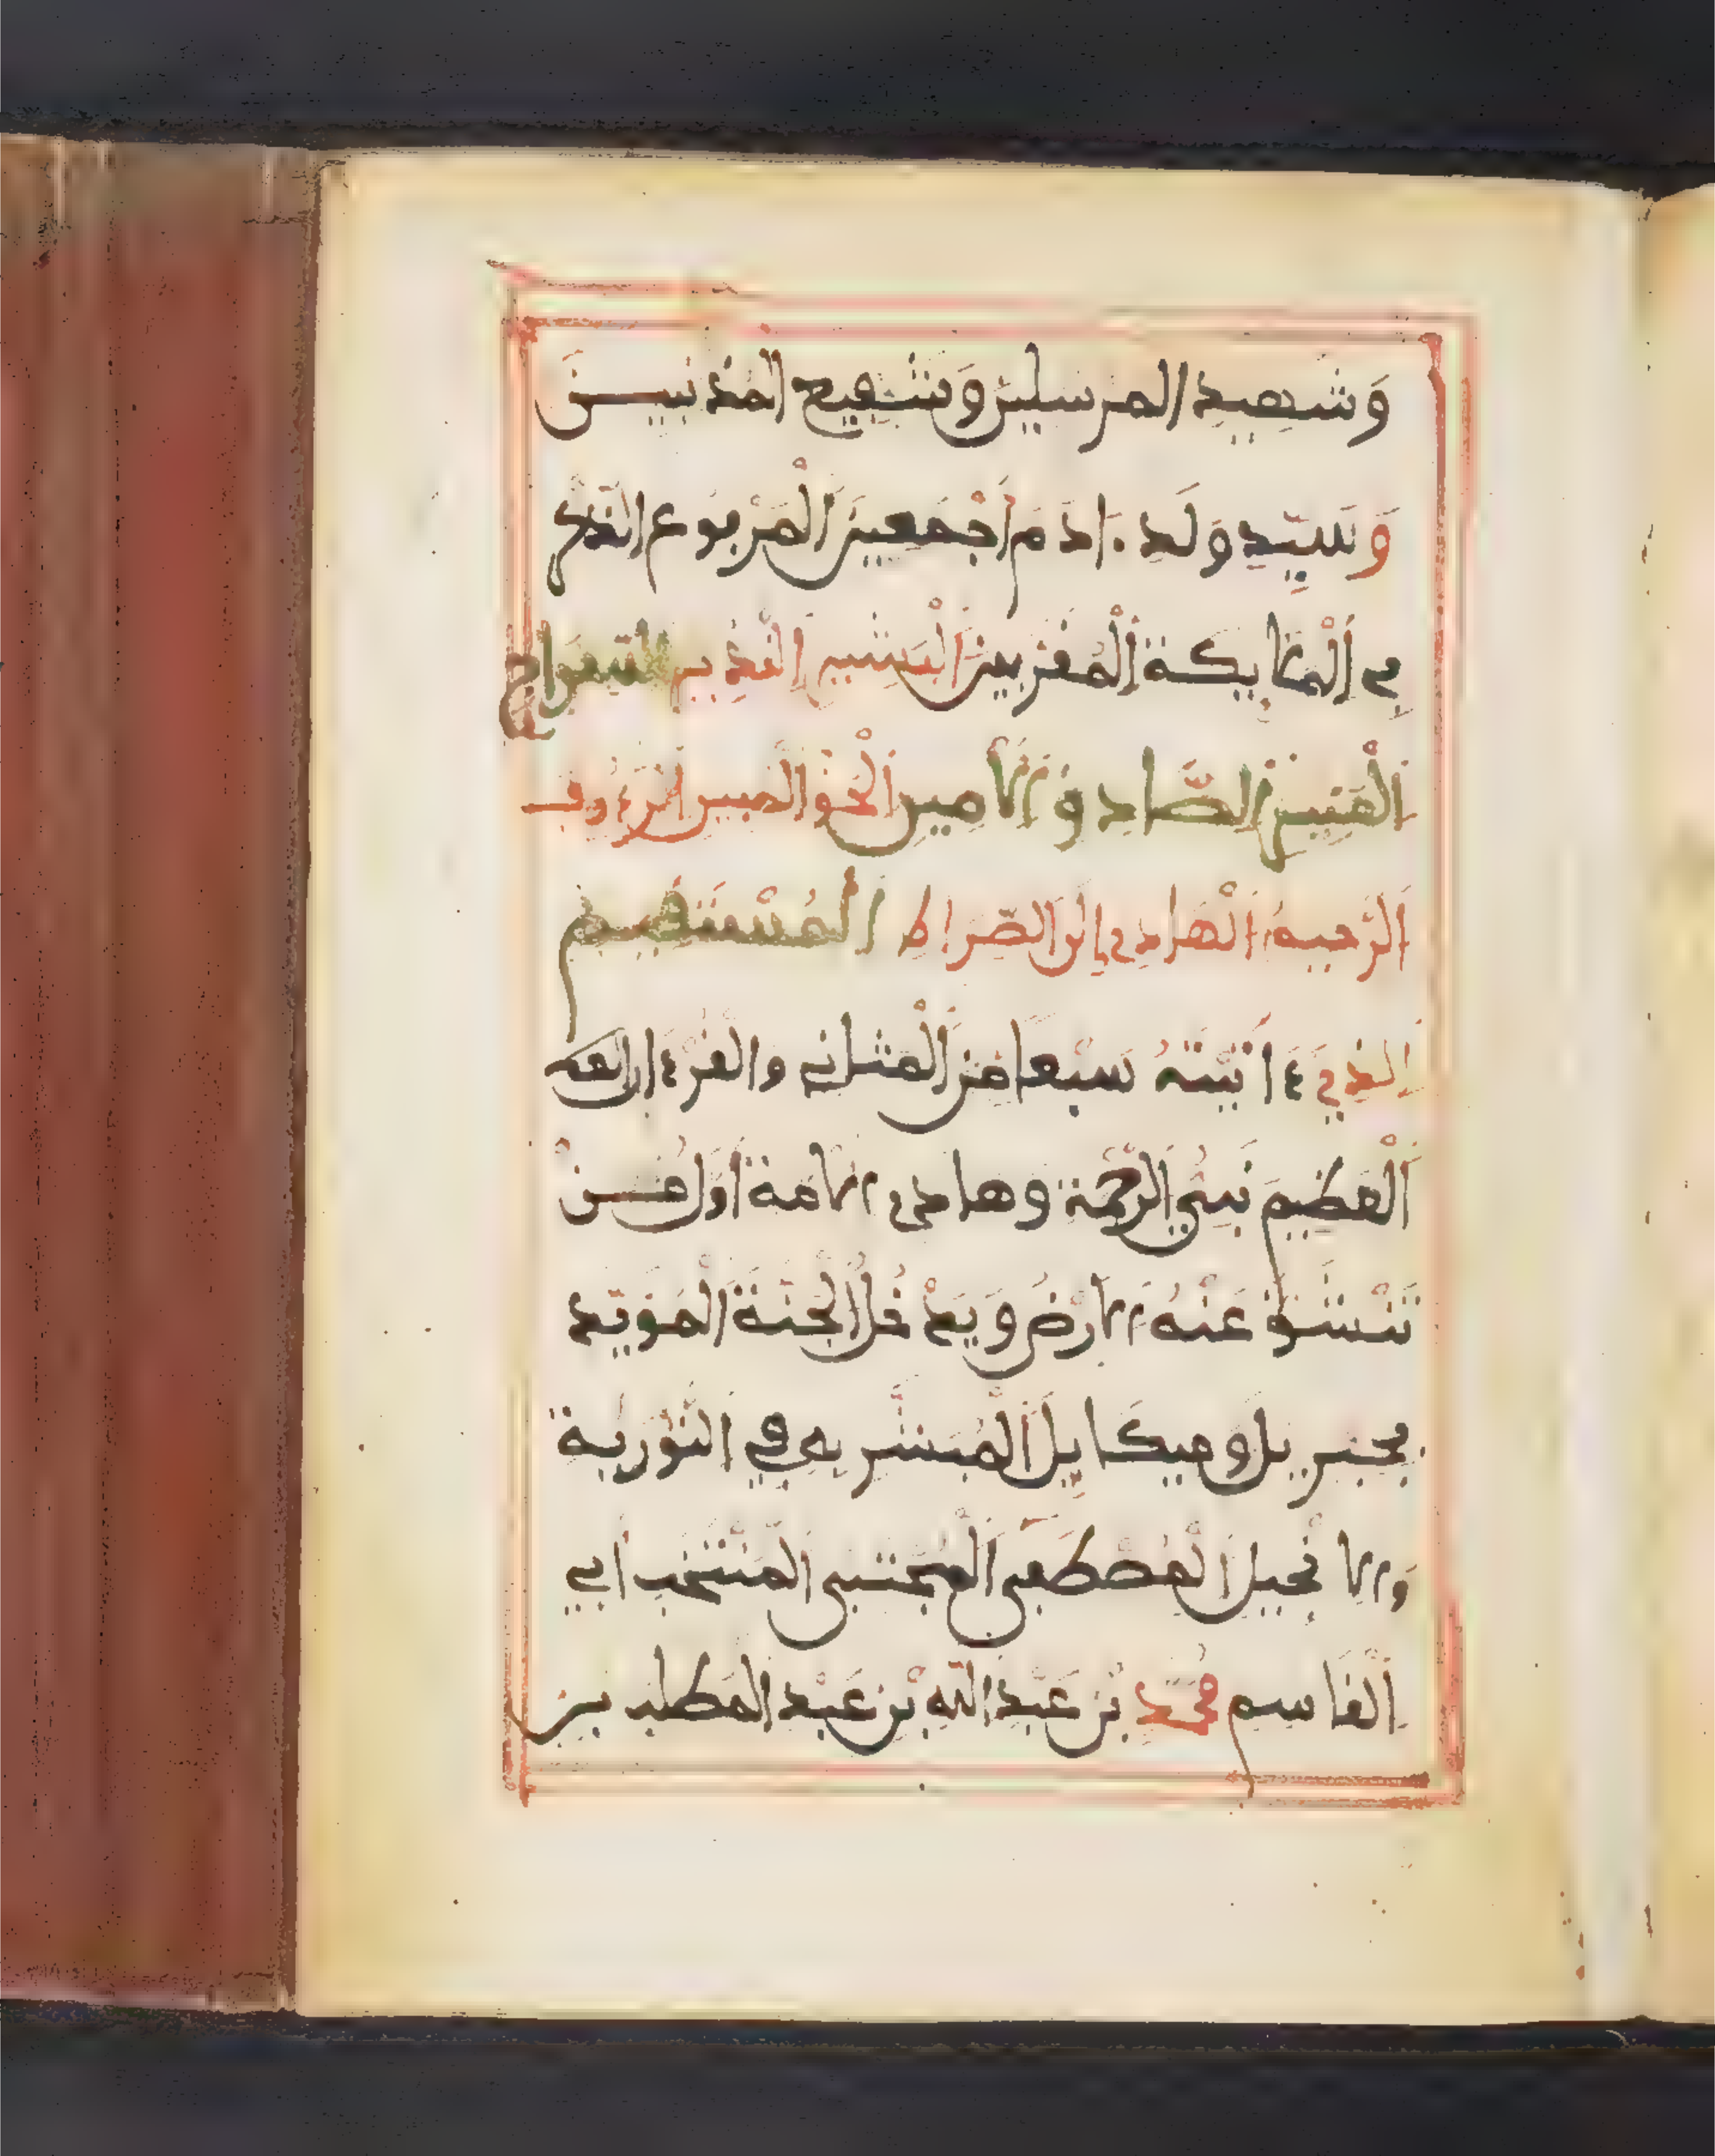 وَشَهِيدِ الْمُرْسَلِينَ وَشَفِيعِ الْمُذْنِبِينَ
وَسَيِّدِ وَلَدِ ءَادَمَ أَجْمَعِينَ الْمَرْفُوعِ الذِّكْرِ
فِي الْمَلَائِكَةِ الْمُقَرَّبِينَ الْبَشِيرِ النَّذِيرِ السِّرَاجِ
الْمُنِيرِ الصَّادِقِ الْأَمِينِ الْحَقِّ الْمُبِينِ الرَّءُوفِ
الرَّحِيمِ الْهَادِي إِلَى الصِّرَاطِ الْمُسْتَقِيمِ
الَّذِي ءَاتَيْتَهُ سَبْعًا مِنَ الْمَثَانِي وَالْقُرْءَانَ
الْعَظِيمَ نَبِيِّ الرَّحْمَةِ وَهَادِي الْأُمَّةِ أَوَّلِ مَنْ
تَنْشَقُّ عَنْهُ الْأَرْضُ وَيَدْخُلُ الْجَنَّةَ الْمُؤَيَّدِ
بِجِبْرِيلَ وَمِيكَائِيلَ الْمُبَشَّرِ بِهِ فِي التَّوْرَيةِ
وَالْإِنْجِيلِ الْمُصْطَفَى الْمُجْتَبَى الْمُنْتَخَبِ أَبِي
الْقَاسِمِ مُحَمَّدِ بْنِ عَبْدِ اللَّهِ بْنِ عَبْدِ الْمُطَّلِبِ بْنِ